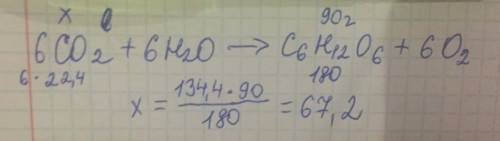 x l 90г
6CO₂ + 6H₂O ⟶ C₆H₁₂O₆ + 6O₂
6·22,4 180
x = 134,4·90 / 180 = 67,2